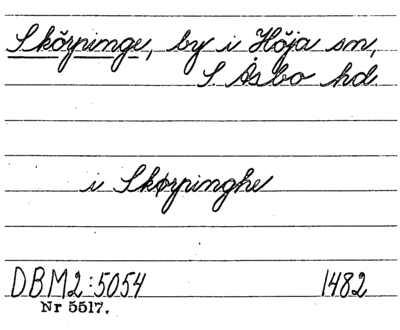 Skörpinge, by i Höja sn,
S. Åsbo hd
i Skørpinghe
DBM2:5054 1482
Nr 5517.